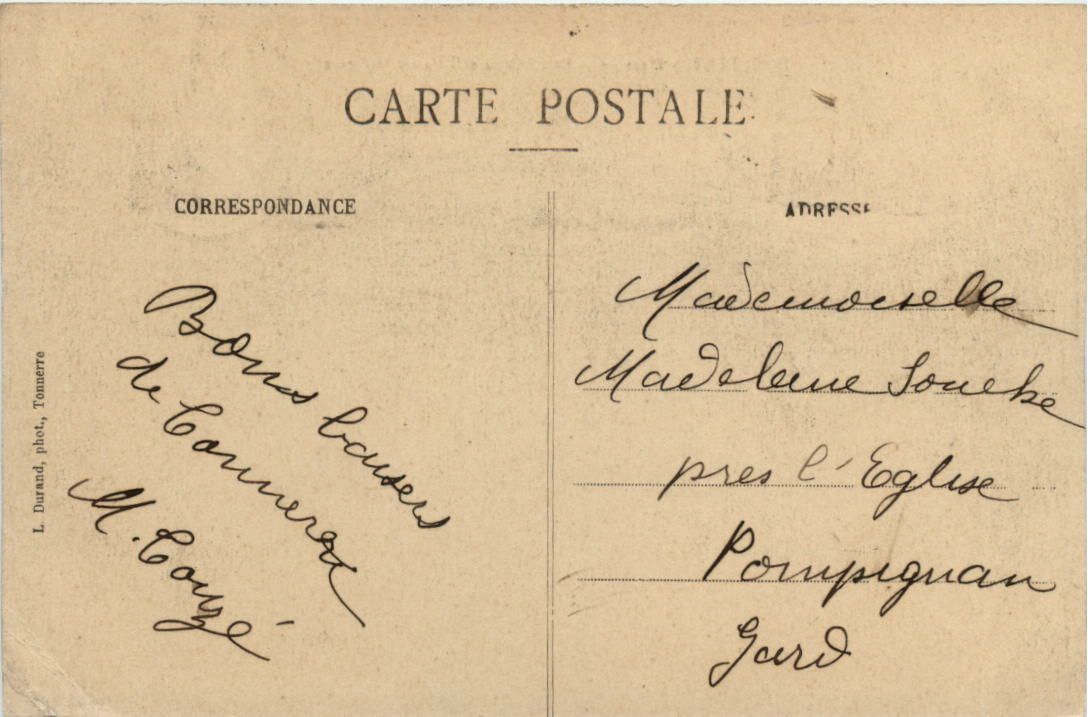 CARTE POSTALE
CORRESPONDANCE
ADRESSE
Bons baisers
de Tonnerre
M. Couzé
Mademoiselle
Madeleine Souche
pres l'Eglise
Pompignan
Gard
L. Durand, phot., Tonnerre